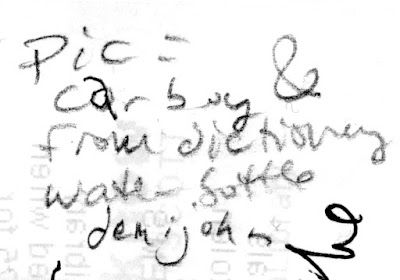 Pic =
carboy &
from dictionary
water bottle
demijohn